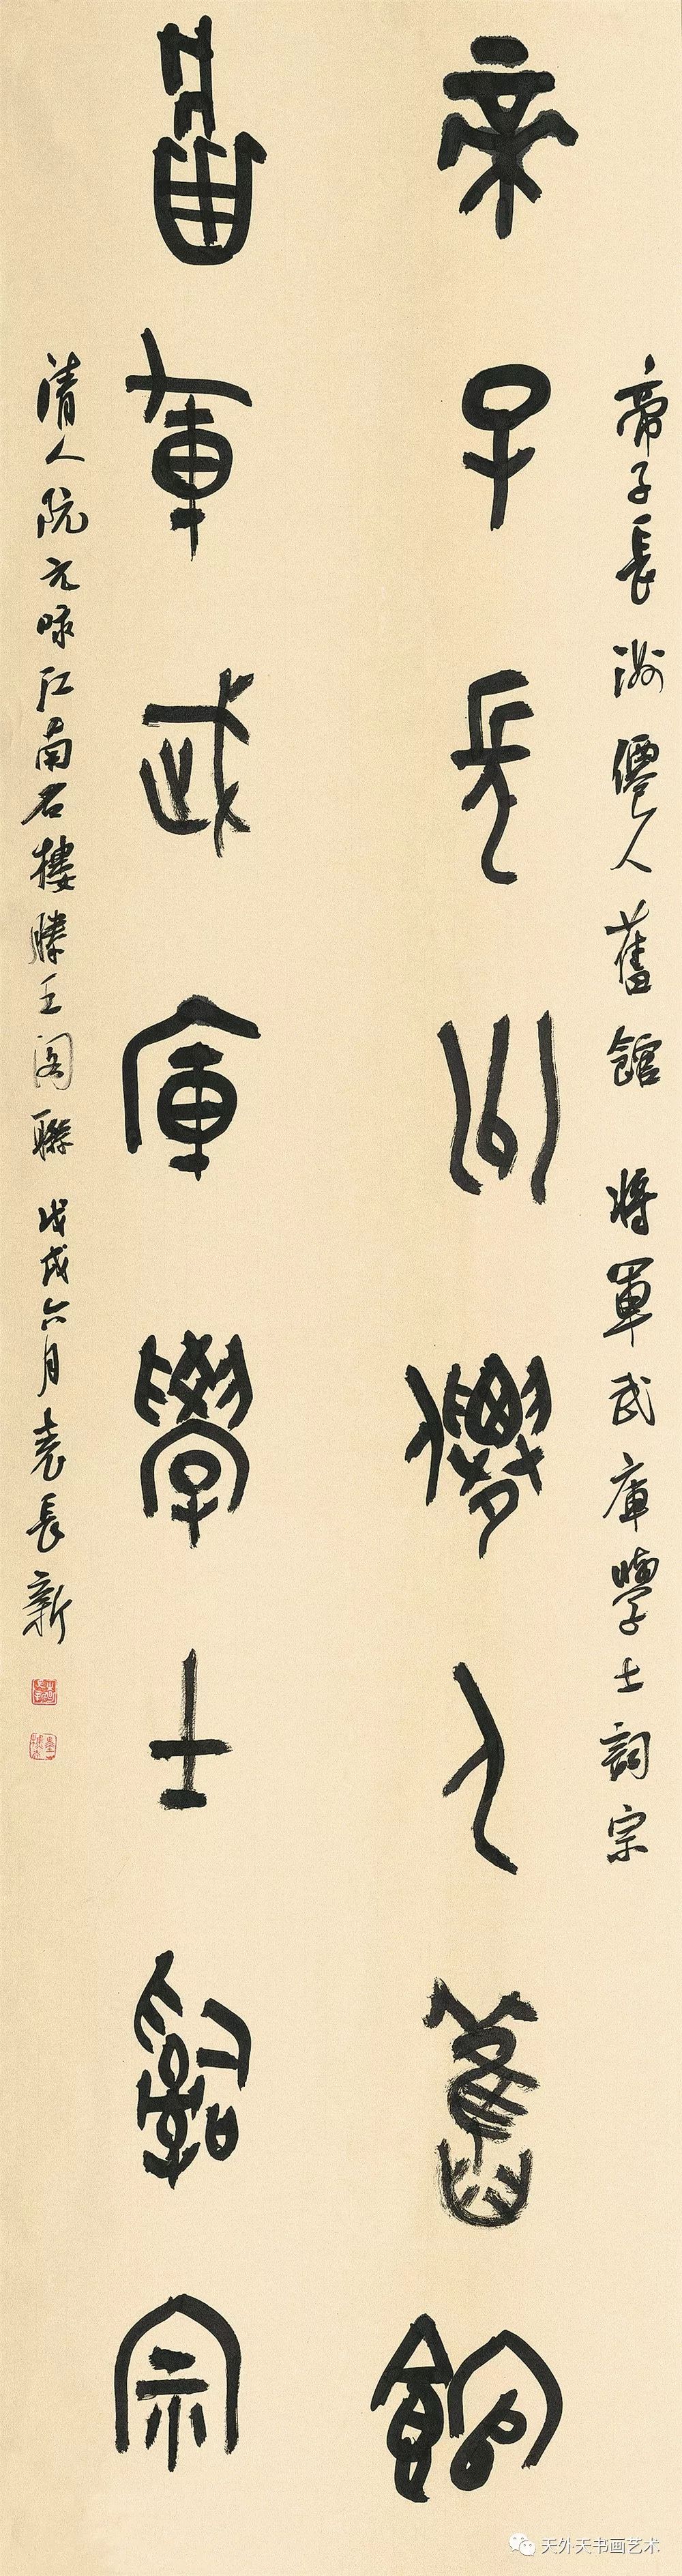 帝子長洲僊人舊館 將軍武庫學士詞宗
帝子長洲僊人舊館
將軍武庫學士詞宗
清人阮元咏江南名樓滕王阁聯 戊戌六月袁長新
天外天书画艺术